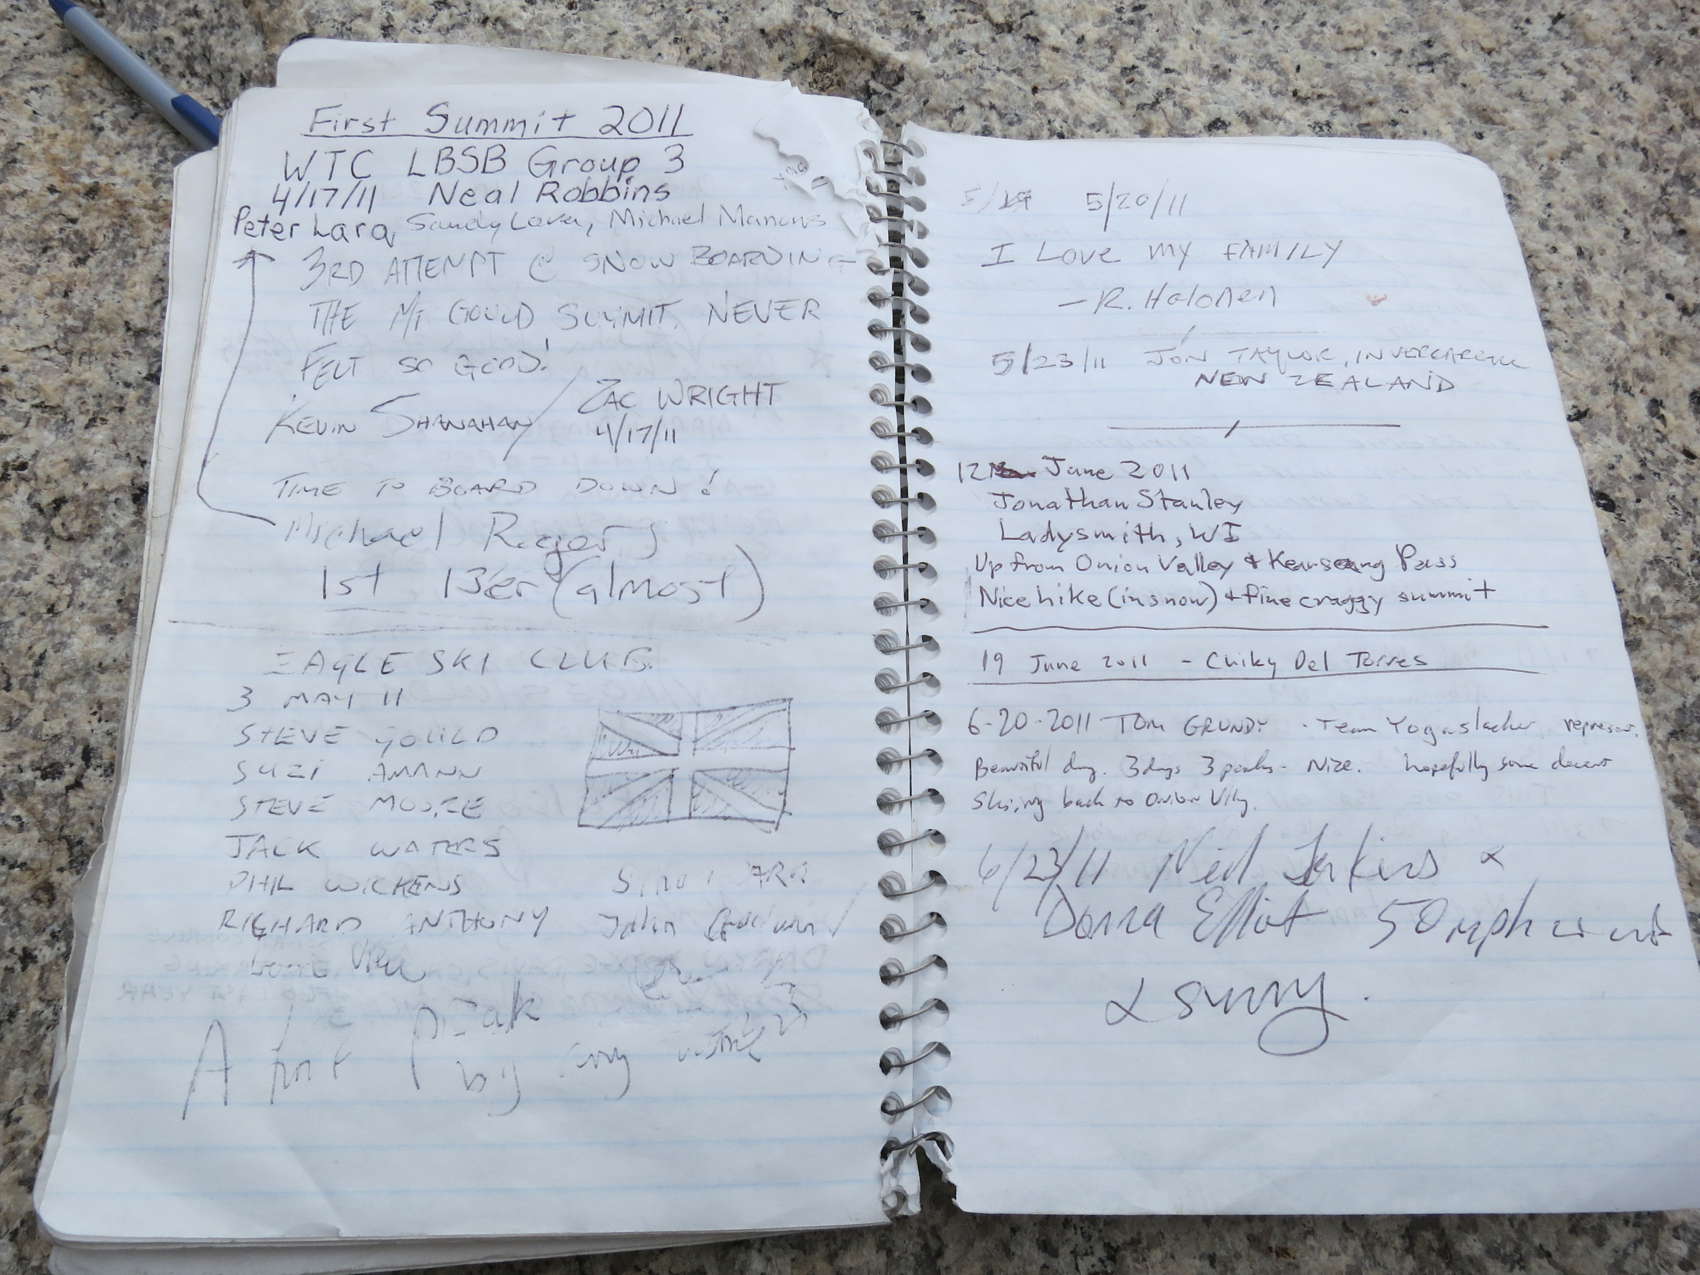 First Summit 2011
WTC LBSB Group 3
4/17/11 Neal Robbins
Peter Lara, Sandy Lara, Michael
3RD ATTEMPT @ SNOWBOARDING
THE Mt GOULD SUMMIT. NEVER
FELT SO GOOD!
KEVIN SHANAHAN / ZAC WRIGHT
4/17/11
TIME TO BOARD DOWN!
Michael Rogers
1st 13er (almost)
EAGLE SKI CLUB.
3 MAY 11
STEVE GOULD
SUZI AMANN
STEVE MOORE
JACK WATERS
PHIL WICKENS
RICHARD ANTHONY John
A fine Peak
by any
5/19 5/20/11
I LOVE my FAMILY
- R. Halonen
5/23/11 JON TAYLOR, INVERCARGILL
NEW ZEALAND
12 June 2011
Jonathan Stanley
Ladysmith, WI
Up from Onion Valley & Kearsarng Pass
Nice hike (in snow) & fine craggy summit
19 June 2011 - Chiky Del Torres
6-20-2011 TOM GRUNDY - Team Yogaslacker, represent.
Beautiful day. 3 days 3 peaks - Nize. hopefully some decent
skiing back to Onion Vlly.
6/23/11 Neil Jenkins &
Donna Elliot 50 mph wind
& sunny.